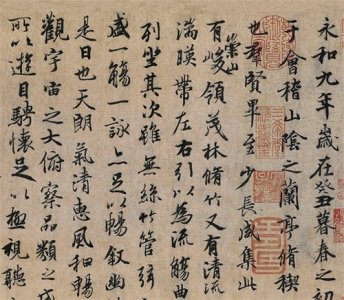 永和九年歲在癸丑暮春之初
于會稽山陰之蘭亭脩稧
也羣賢畢至少長咸集此
有崇山峻領茂林脩竹又有清流
湍暎帶左右引以為流觴曲
列坐其次雖無絲竹管弦
盛一觴一詠亦足以暢敘幽
是日也天朗氣清惠風和暢
觀宇宙之大俯察品類之盛
所以遊目騁懷足以極視聽